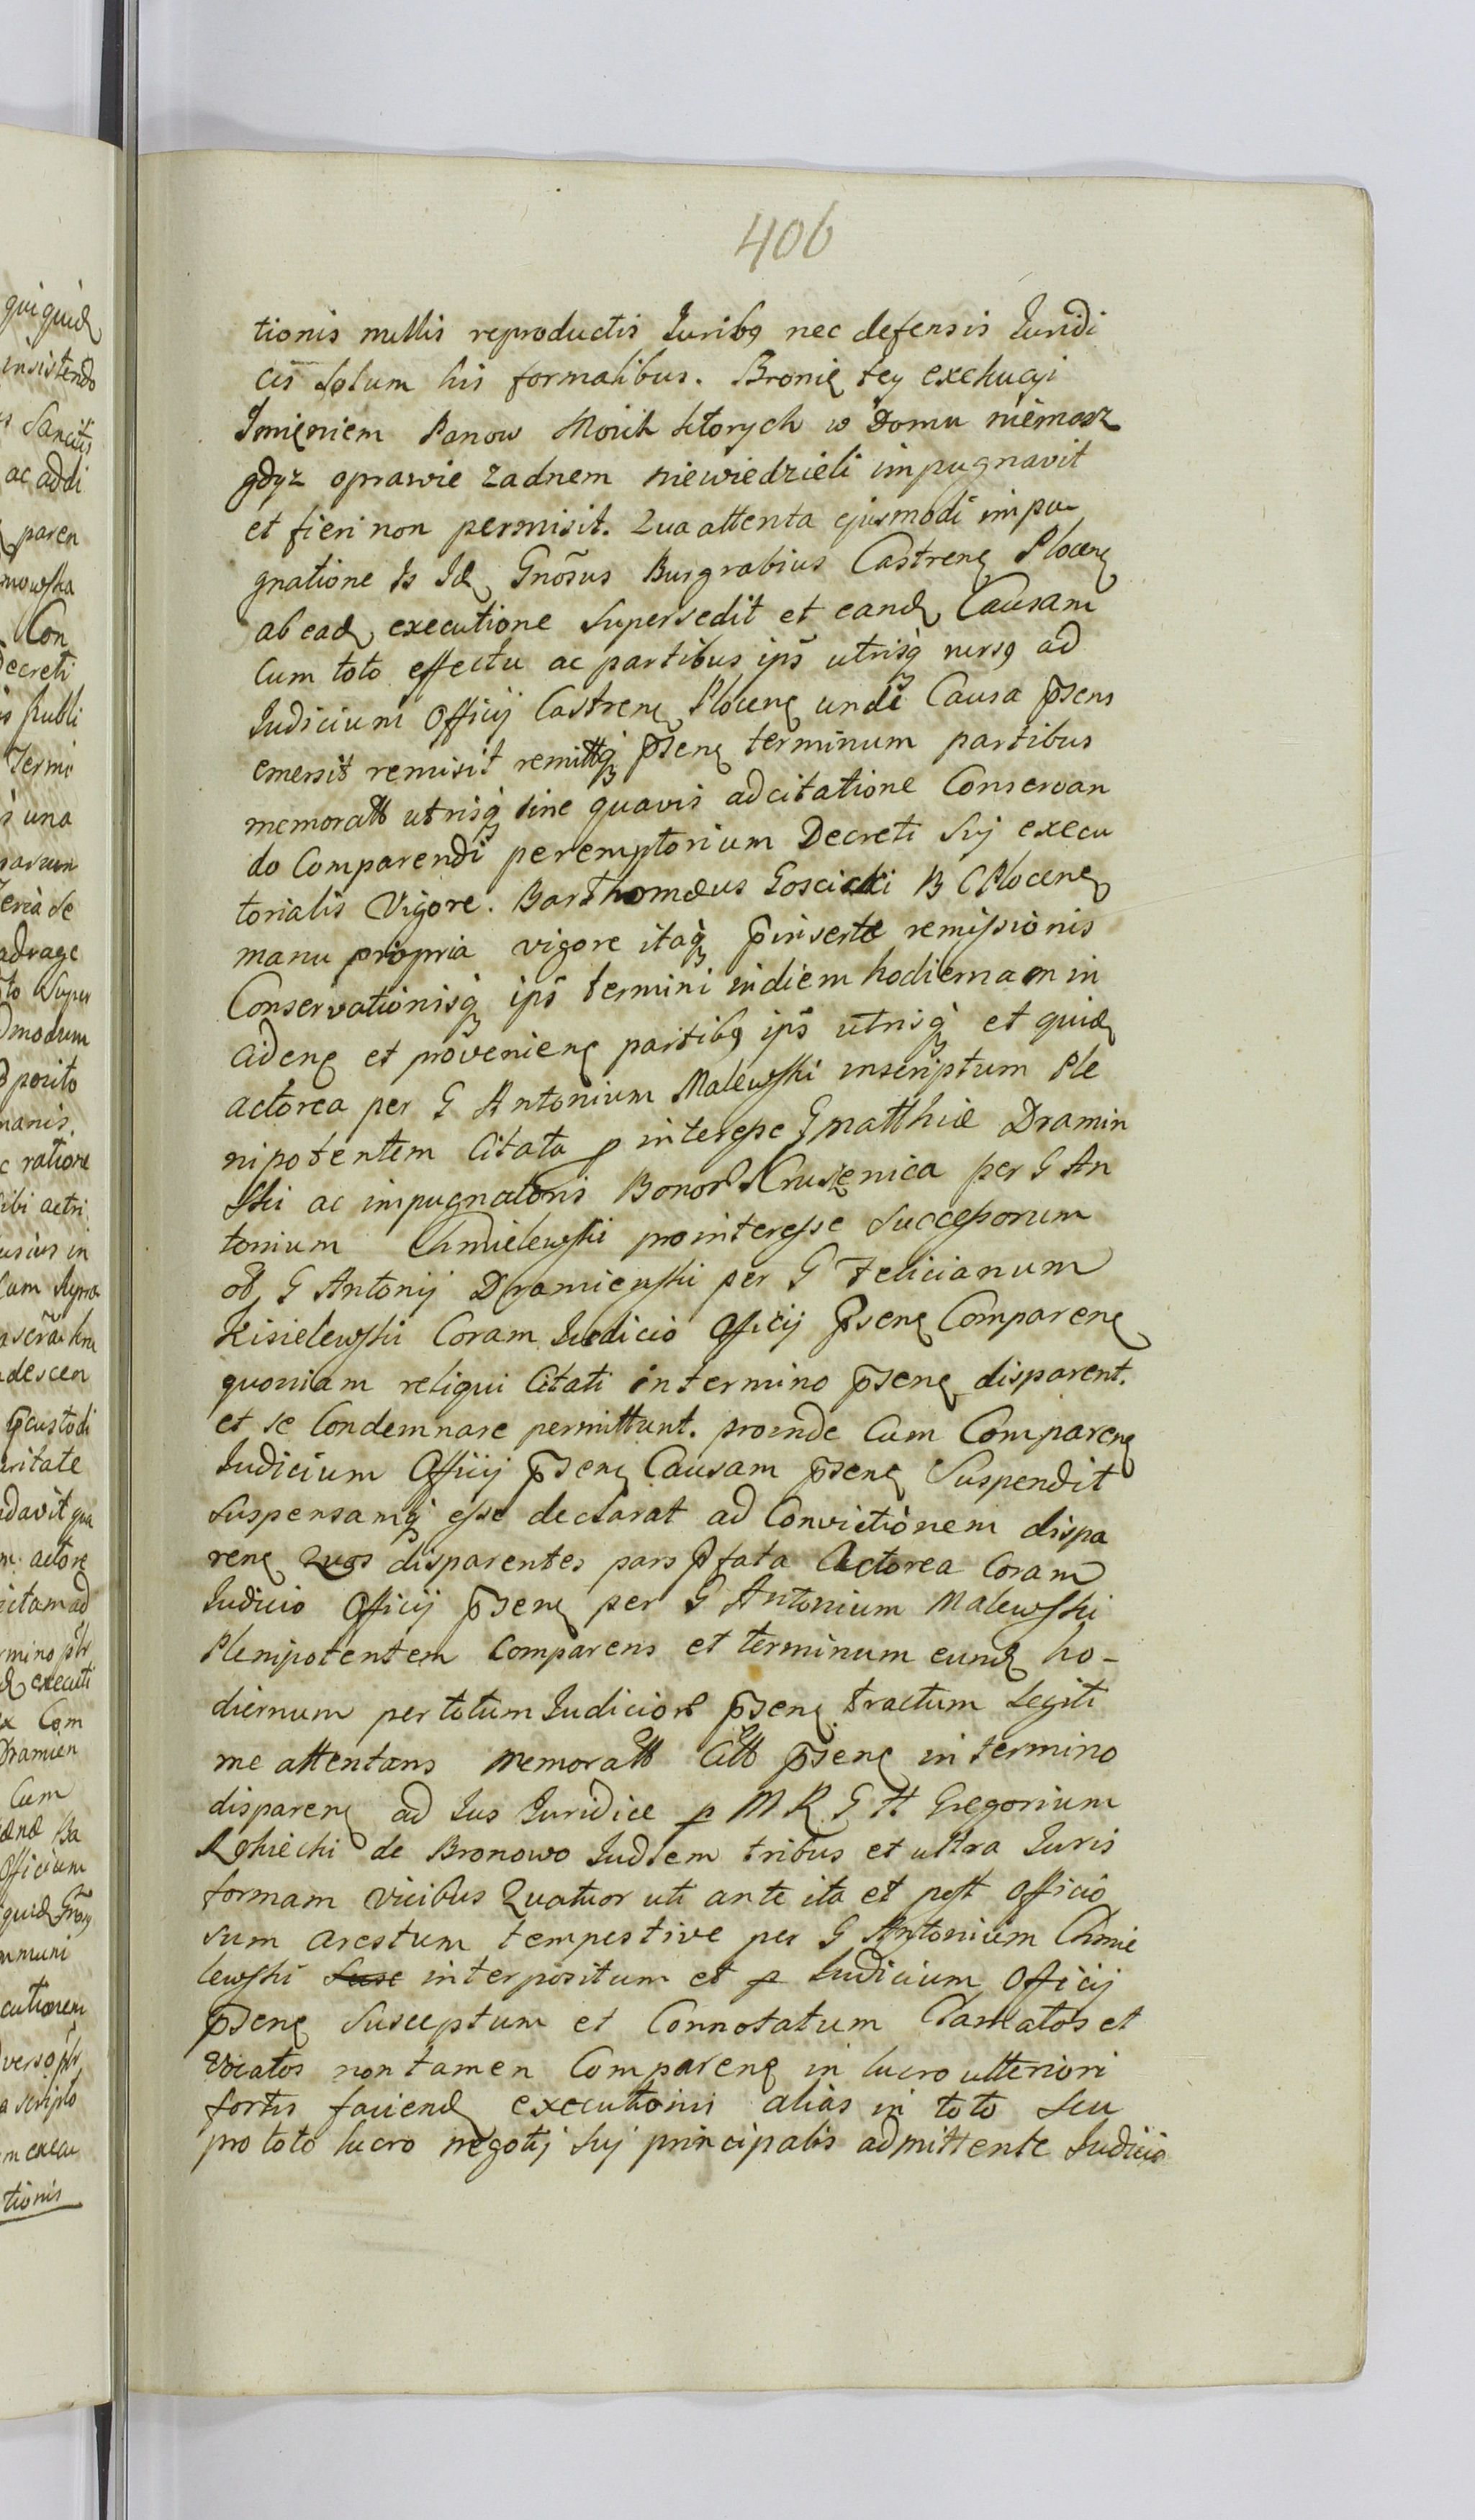 406
tionis nullis reproductis Juribq nec defensis Juridi
cis Solum his formalibus. Bronię tey exekucyi
Imięniem Panow Moich ktorych w Domu niemasz
gdyz oprawie zadnem niewiedzieli impugnavit
et fieri non permisit. Qua attenta ejusmodi impu
gnatione Is Id Gnōsus Burgrabius Castren Plocen
ab ead executione Supersedit et eand Causam
Cum toto effectu ac partibus ips̄ utrisq rursq ad
Judicium Officij Castren Plocen unde Causa p̄sens
emersit remisit remittq p̄sen terminum partibus
memoratt utrisq sine quavis adcitatione Conservan
do Comparendi peremptorium Decreti Sui execu
torialis Vigore. Barthomæus Goscicki B C Plocen
manu propria vigore itaq p̄inserte remissionis
Conservationisq ips̄ termini in diem hodiernam in
ciden et provenien partibq ips̄ utrisq et quid
actorea per G Antonium Malewski inscriptum Ple
nipotentem Citata p interesse G Matthiæ Dramin
ski ac impugnatoris Bonor per G An
tonium Chmielewski pro interesse Successorum
od G Antonij Dramienski per G Felicianum
Kisielewski Coram Judicio Officij p̄sen Comparen
quoniam reliqui Citati in termino p̄sen disparent.
et se Condemnare permittunt. proinde Cum Comparen
Judicium Officij p̄sen Causam p̄sen Suspendit
Suspensamq esse declarat ad Convictionem dispa
ren Quos disparentes pars p̄fata Actorea Coram
Judicio Officij p̄sen per G Antonium Malewski
Plenipotentem Comparens et terminum eund ho-
diernum per totum Judicior p̄sen tractum Legiti
me attentans Memoratt Citt p̄sen in termino
disparen ad Jus Juridice p M R G H Gregorium
de Bronowo Judtem tribus et ultra Juris
formam vicibus Quatuor uti ante ita et post officio
sum arestum tempestive per G Antonium Chmie
lewski interpositum et p Judicium Officij
p̄sen Susceptum et Connotatum Clamatos et
vocatos non tamen Comparen in lucro ulteriori
fortis faciend executionis alias in toto Seu
pro toto lucro negotij Sui principalis admittente Judicio